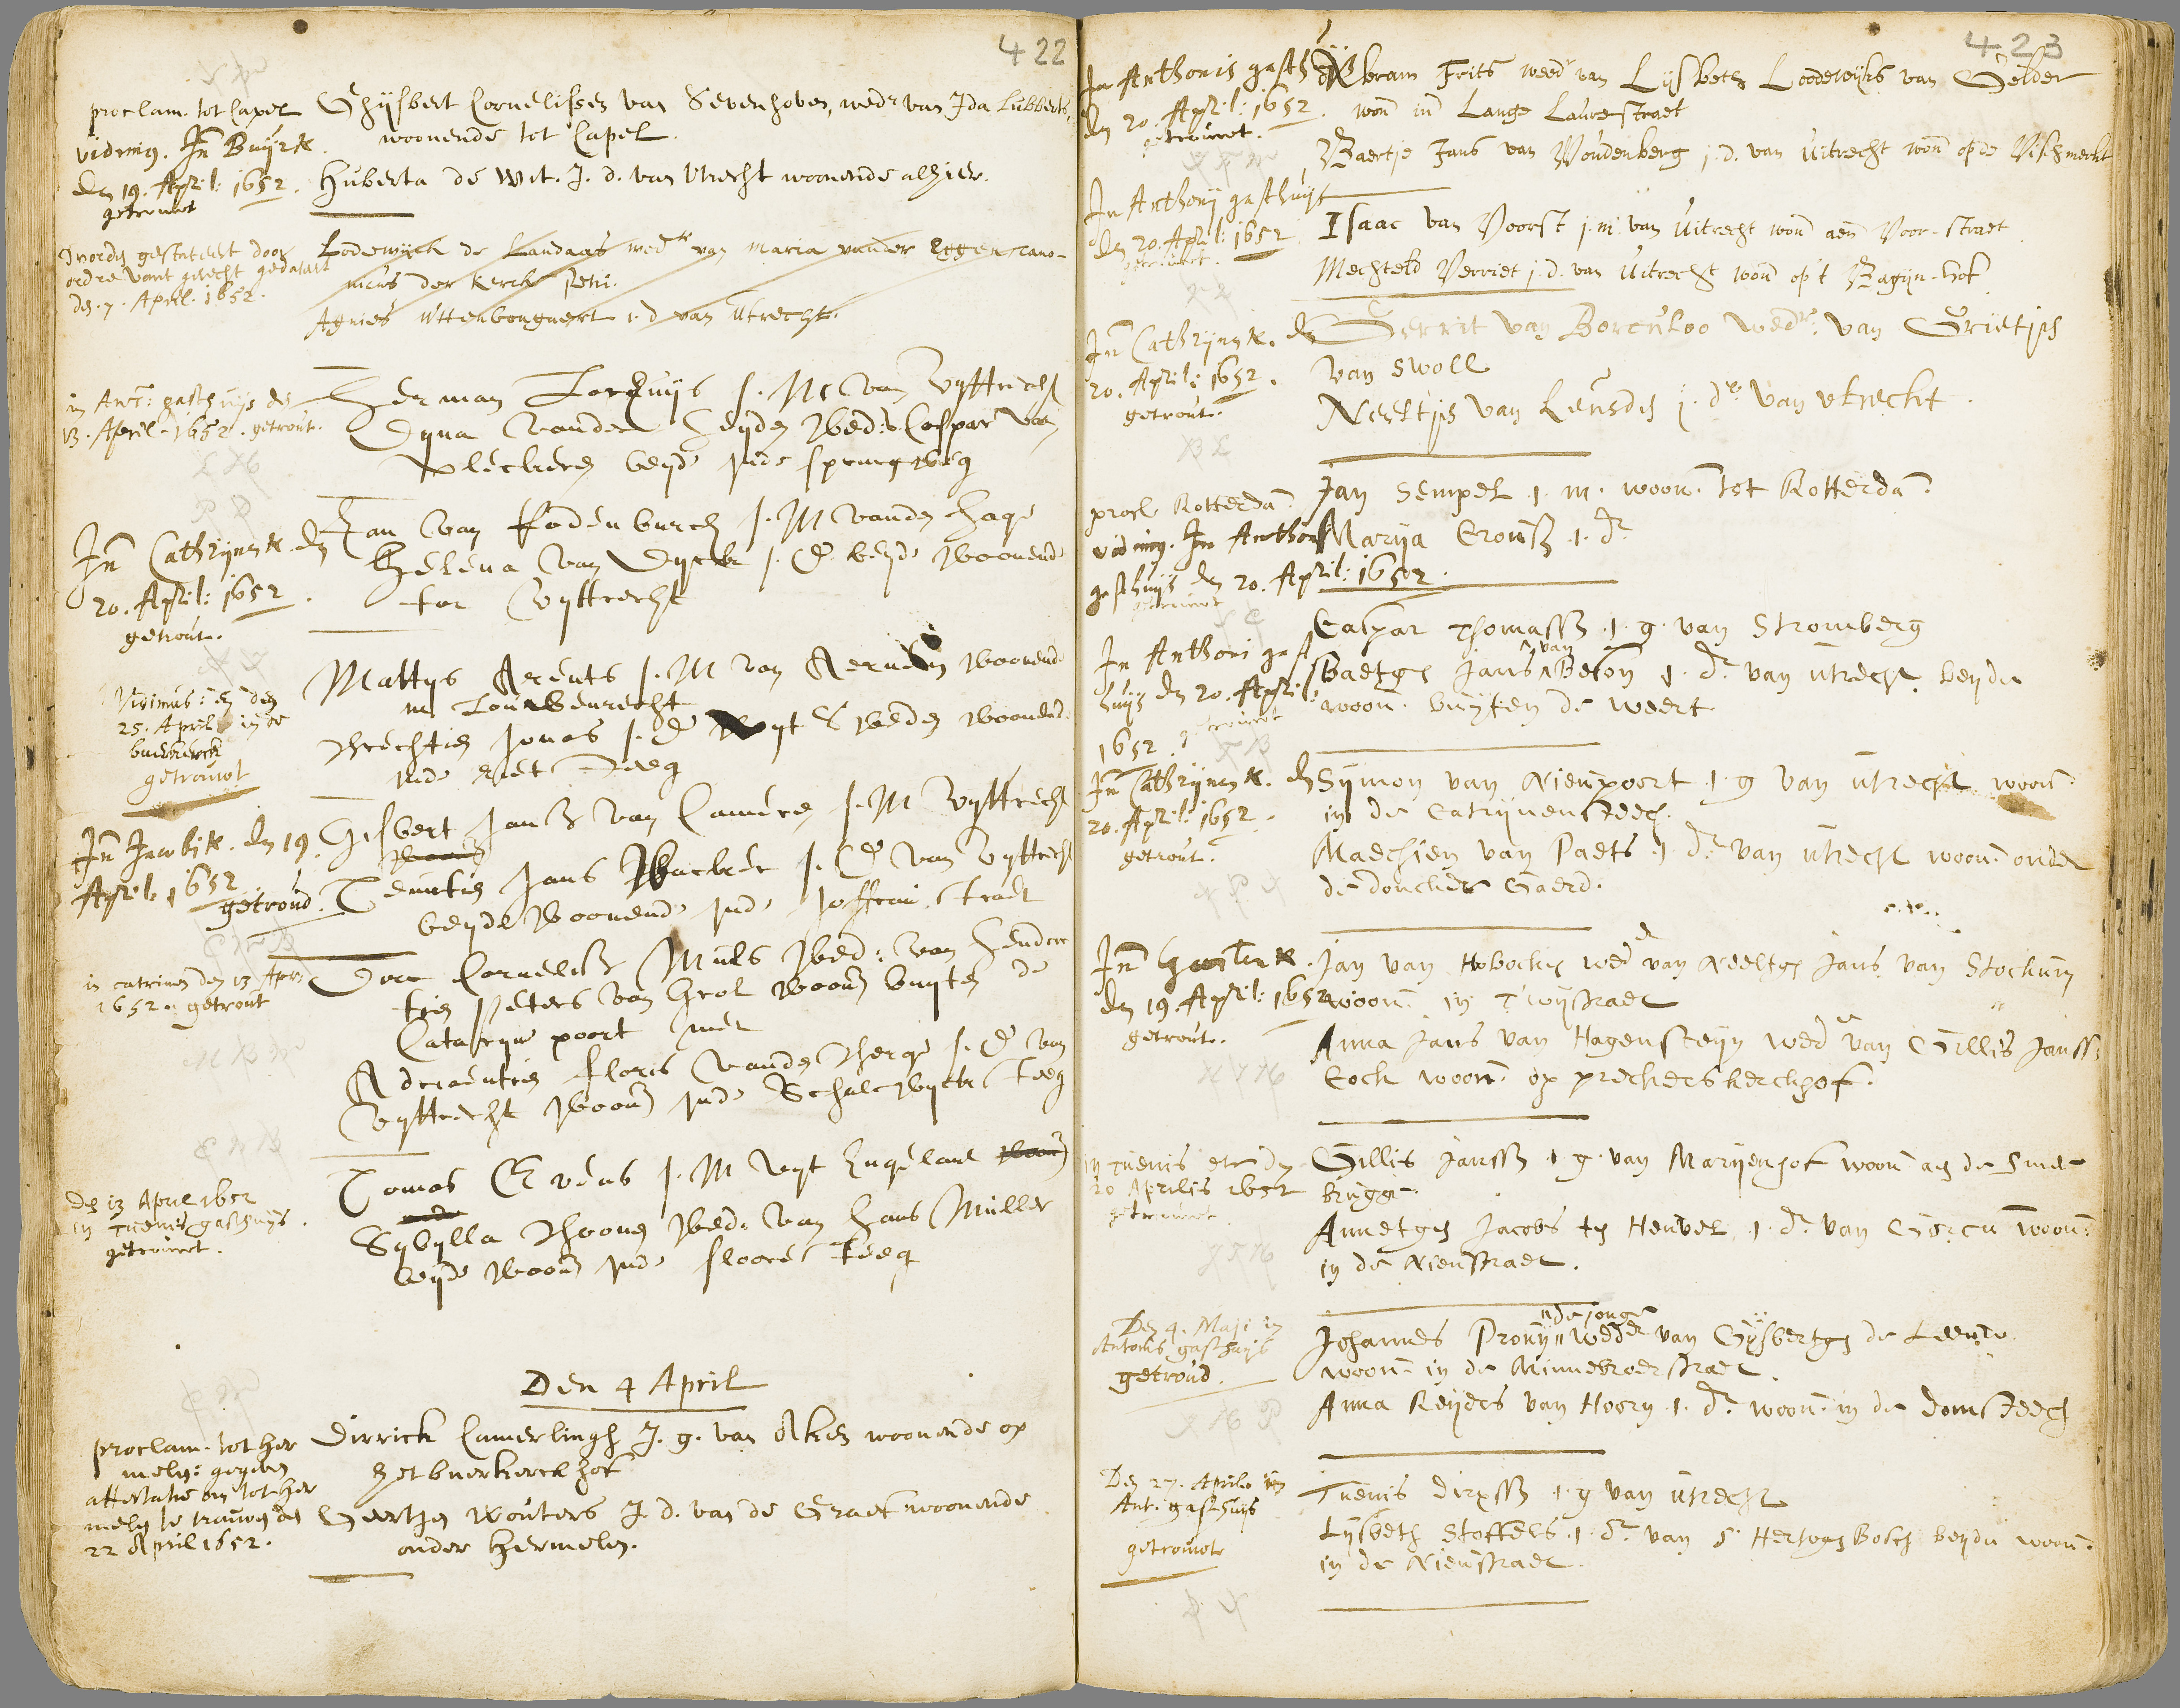 422
proclam. tot Capel
vidimus. In Buyrk.
den 19. April: 1652.
getrouwt
Ghijsbert Cornelissen van Sevenhoven, wedr van Ida Lubberts,
woonende tot Capel.
Huberta de Wit. J. d. van Utrecht woonende alhier.
ordre vant gerecht gedateert
den. 7. April. 1652.
Lodewijck de Landaas wedr van Maria vander Eggen cano-
nicus der kerck
Agnies Uttenbongaert j. d van Utrecht.
in Ant: gasthuijs den
13. April. 1652. getrout.
Herman J. M van Uyttrecht
Dyna vander Heyden Wed: v. Caspar van
beyde inde springweg
In Cathrijnen k. den
20. April: 1652.
getrout.
Jan van Rodenburch J. M vanden Hage
Helena van Dyck J. D. beyde woonende
tot Uyttrecht
Vidimus: en den
25. April in de
buerkerck
getrouwt
Mattys Arents J. M van Aernem woonende
in Louwenrecht
Jonas J. D uyt Sweden woonende
inde steeg
In Jacobi k. den 19.
April: 1652
getroud.
Gisbert Jansz van J. M Uyttrecht
Teuntien Jans J. D van Uyttrecht
beyde woonende inde Joffrou straet
in catrinen den 13 April
1652. getrout
Cornelisz Muls Wed: van Hendrick
tien Peters van Grol woonen buyten de
Cataryne poort met
Adriaentien Floris vanden Berge J. D van
Uyttrecht woonen inde Schalckwyck steeg
den 13 April 1652
in Tuenis gasthuijs.
getrouwt.
Tomas Evens J. M uyt Engelant
Sybylla Wed: van Hans Muller
beyde woonen inde floore steeg
Den 4 April
proclam. tot Her
melen: gegeven
attestatie om tot Her
melen te trouwen den
22 April 1652.
Dirrick Camerlingh J. g. van Aken woonende op
het buerkerckhof
Geertgen Wouters J d. van de Graef woonende
onder Hermelen.
423
In Anthonis gasth
den 20. April: 1652.
getrouwt.
Abram Frits weedr van Lijsbeth Lodewijks van Gelder
won in Lange Lauwerstraet
Baertje Jans van Woudenberg j. d. van Uitrecht won op de Vischmerkt
In Anthonij gasthuijs
den 20. April: 1652
getrouwt.
Isaac van Voorst j. m. van Uitrecht won aen Voor-straet
Mechteld Verriet j. d. van Uitrecht won op't Bagijn-hof
In Cathrijnen k. den
20. April: 1652.
getrout.
Gerrit van Borculoo wedr: van Grietjes
van Swoll
Neeltjes van Leusden j. dr van utrecht.
procl Rotterdam.
vidimus. In Anthonis
gasthuijs den 20. April: 1652.
getrouwt
Jan Sempel j. m. woon. tot Rotterdam.
Marya Crous j. dr
In Anthoni gast
huijs den 20. April
1652. getrouwt
Caspar Thomassz j. g. van Stromberg
Baetgen Jans van Beton j. dr van Utrecht beyde
woon. buyten de weert
In Cathrijnen k. den
20. April: 1652.
getrout.
Symon van Nieupoort j. g van Utrecht woon.
in de Catrijnensteech.
Maechien van Paets j. dr van Utrecht woon. onder
de doncker Gaerd.
den 19. April: 1652
getrout.
Jan van Hobocken wedr van Neeltgen Jans van Stockum
woon. in Twystraet
Anna Jans van Hagensteyn wed van Gillis Janssz
Cock woon. op preckerskerckhof.
20 Aprilis 1652
getrouwt
Gillis Janssz j. g. van Maryenhof woon aen de Smee
brugge.
Annetgen Jacobs ten Heuvel j. dr van Gorcum woon:
in de Nieustraet.
Den 4. Maji in
Antonis gasthuijs
getroud.
Johannes Prouijn de jonge wedr van Gysbertgen de Leeuw
woon. in de Minnebroerstraet.
Anna Reyders van Hoorn j. dr woon. in de domsteech
Den 27. April in
Ant. gasthuijs
getrouwt
Tuenis Dirxssz j. g van Utrecht
Lysbeth Stoffels j. dr van S. Hertogenbosch beyde woon.
in de Nieustraet.